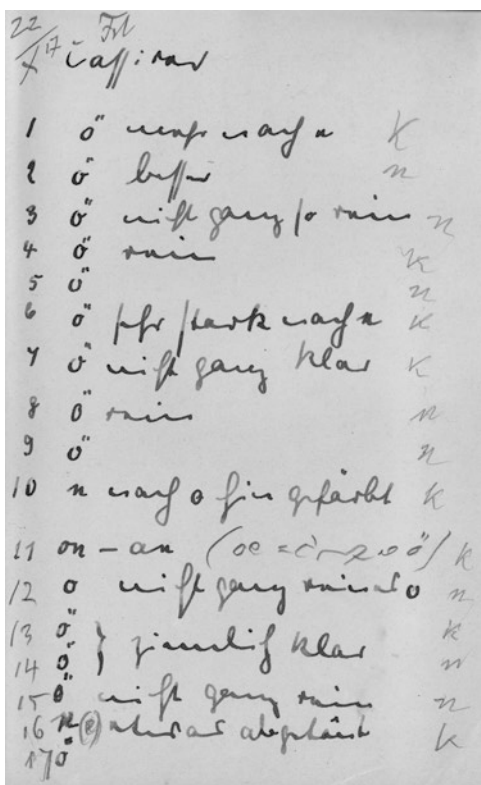 22/X 17 Frl
Cassirer
1 ö mehr nach u K
2 ö besser n
3 ö nicht ganz so rein n
4 ö rein K
5 ö n
6 ö sehr stark nach u K
7 ö nicht ganz klar K
8 ö rein n
9 ö n
10 u nach o hin gefärbt K
11 on – an K
12 o nicht ganz rein o n
13 ö } ziemlich klar K
14 ö n
15 ö nicht ganz rein n
16 etwas K
17 ö